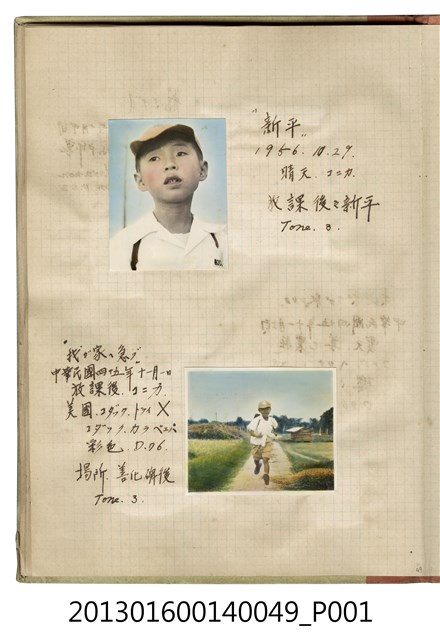 "新平"
1956. 10. 29.
晴天. コニカ.
放課後ミ新平
Tone. 3.
"我が家へ急グ"
中華民國四五年十一月一日
放課後. コニカ
美國. コダック. トライX
コダック. カラペーパ
彩色. D.76.
場所. 善化
Tone. 3.
201301600140049_P001